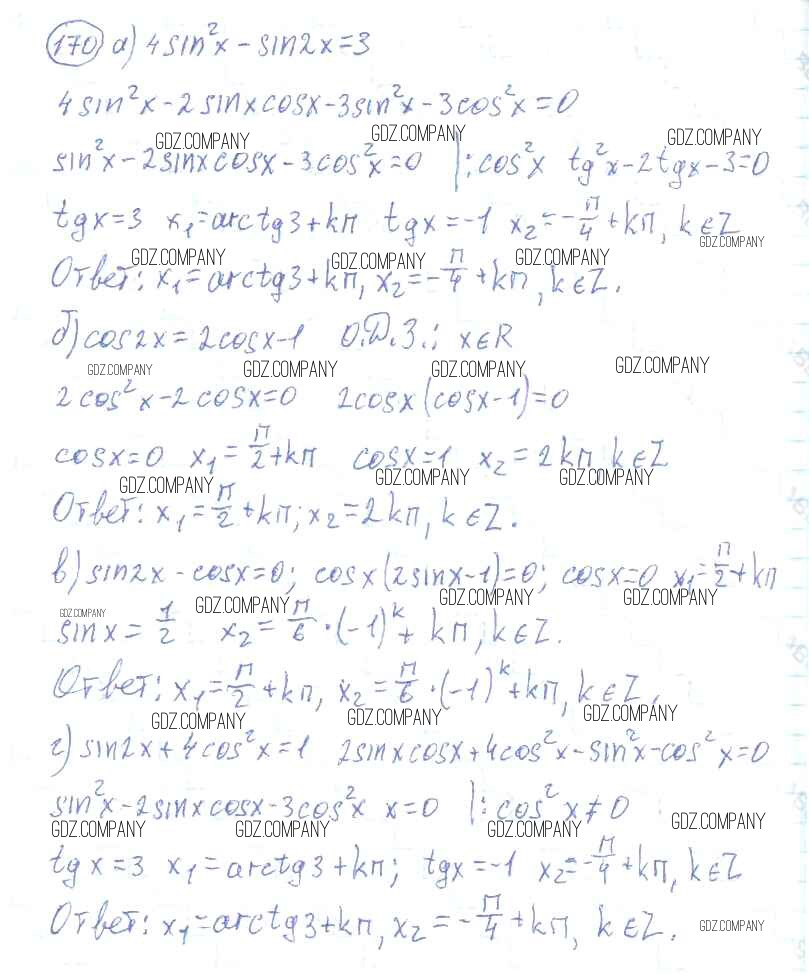 170 а) 4sin²x - sin2x = 3
4sin²x - 2sinxcosx - 3sin²x - 3cos²x = 0
GDZ.COMPANY GDZ.COMPANY GDZ.COMPANY
sin²x - 2sinxcosx - 3cos²x = 0 |:cos²x tg²x - 2tgx - 3 = 0
tgx = 3 x₁ = arctg3 + kп tgx = -1 x₂ = -п/4 + kп, k ∈ Z
GDZ.COMPANY GDZ.COMPANY GDZ.COMPANY GDZ.COMPANY
Ответ: x₁ = arctg3 + kп, x₂ = -п/4 + kп, k ∈ Z.
б) cos2x = 2cosx - 1 О.Д.З.: x ∈ R
GDZ.COMPANY GDZ.COMPANY GDZ.COMPANY GDZ.COMPANY
2cos²x - 2cosx = 0 2cosx(cosx - 1) = 0
cosx = 0 x₁ = п/2 + kп cosx = 1 x₂ = 2kп k ∈ Z
GDZ.COMPANY GDZ.COMPANY GDZ.COMPANY
Ответ: x₁ = п/2 + kп; x₂ = 2kп, k ∈ Z.
в) sin2x - cosx = 0; cosx(2sinx - 1) = 0; cosx = 0 x₁ = п/2 + kп
GDZ.COMPANY GDZ.COMPANY GDZ.COMPANY GDZ.COMPANY
sinx = 1/2 x₂ = п/6 · (-1)ᵏ + kп, k ∈ Z.
Ответ: x₁ = п/2 + kп, x₂ = п/6 · (-1)ᵏ + kп, k ∈ Z.
GDZ.COMPANY GDZ.COMPANY GDZ.COMPANY
г) sin2x + 4cos²x = 1 2sinxcosx + 4cos²x - sin²x - cos²x = 0
sin²x - 2sinxcosx - 3cos²x x = 0 |:cos²x ≠ 0
GDZ.COMPANY GDZ.COMPANY GDZ.COMPANY GDZ.COMPANY
tgx = 3 x₁ = arctg3 + kп; tgx = -1 x₂ = -п/4 + kп, k ∈ Z
Ответ: x₁ = arctg3 + kп, x₂ = -п/4 + kп, k ∈ Z.
GDZ.COMPANY